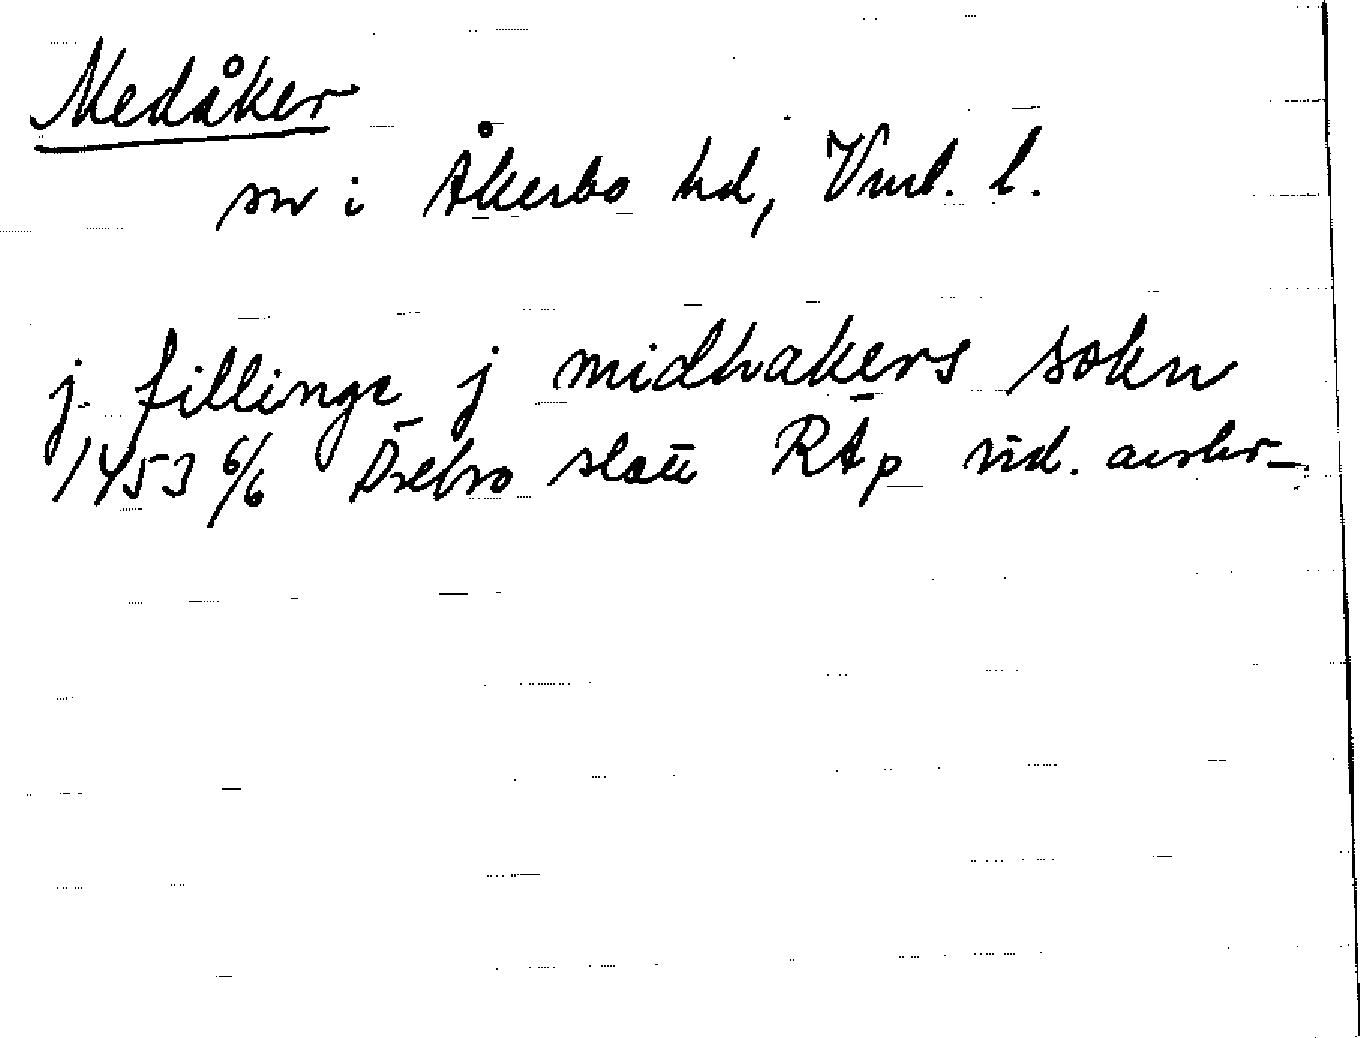 Medåker
sn i Åkerbo hd, Vml. l.
j fillinge j midhakers sokn
1453 6/6 Örebro slott RAp vid. avskr.